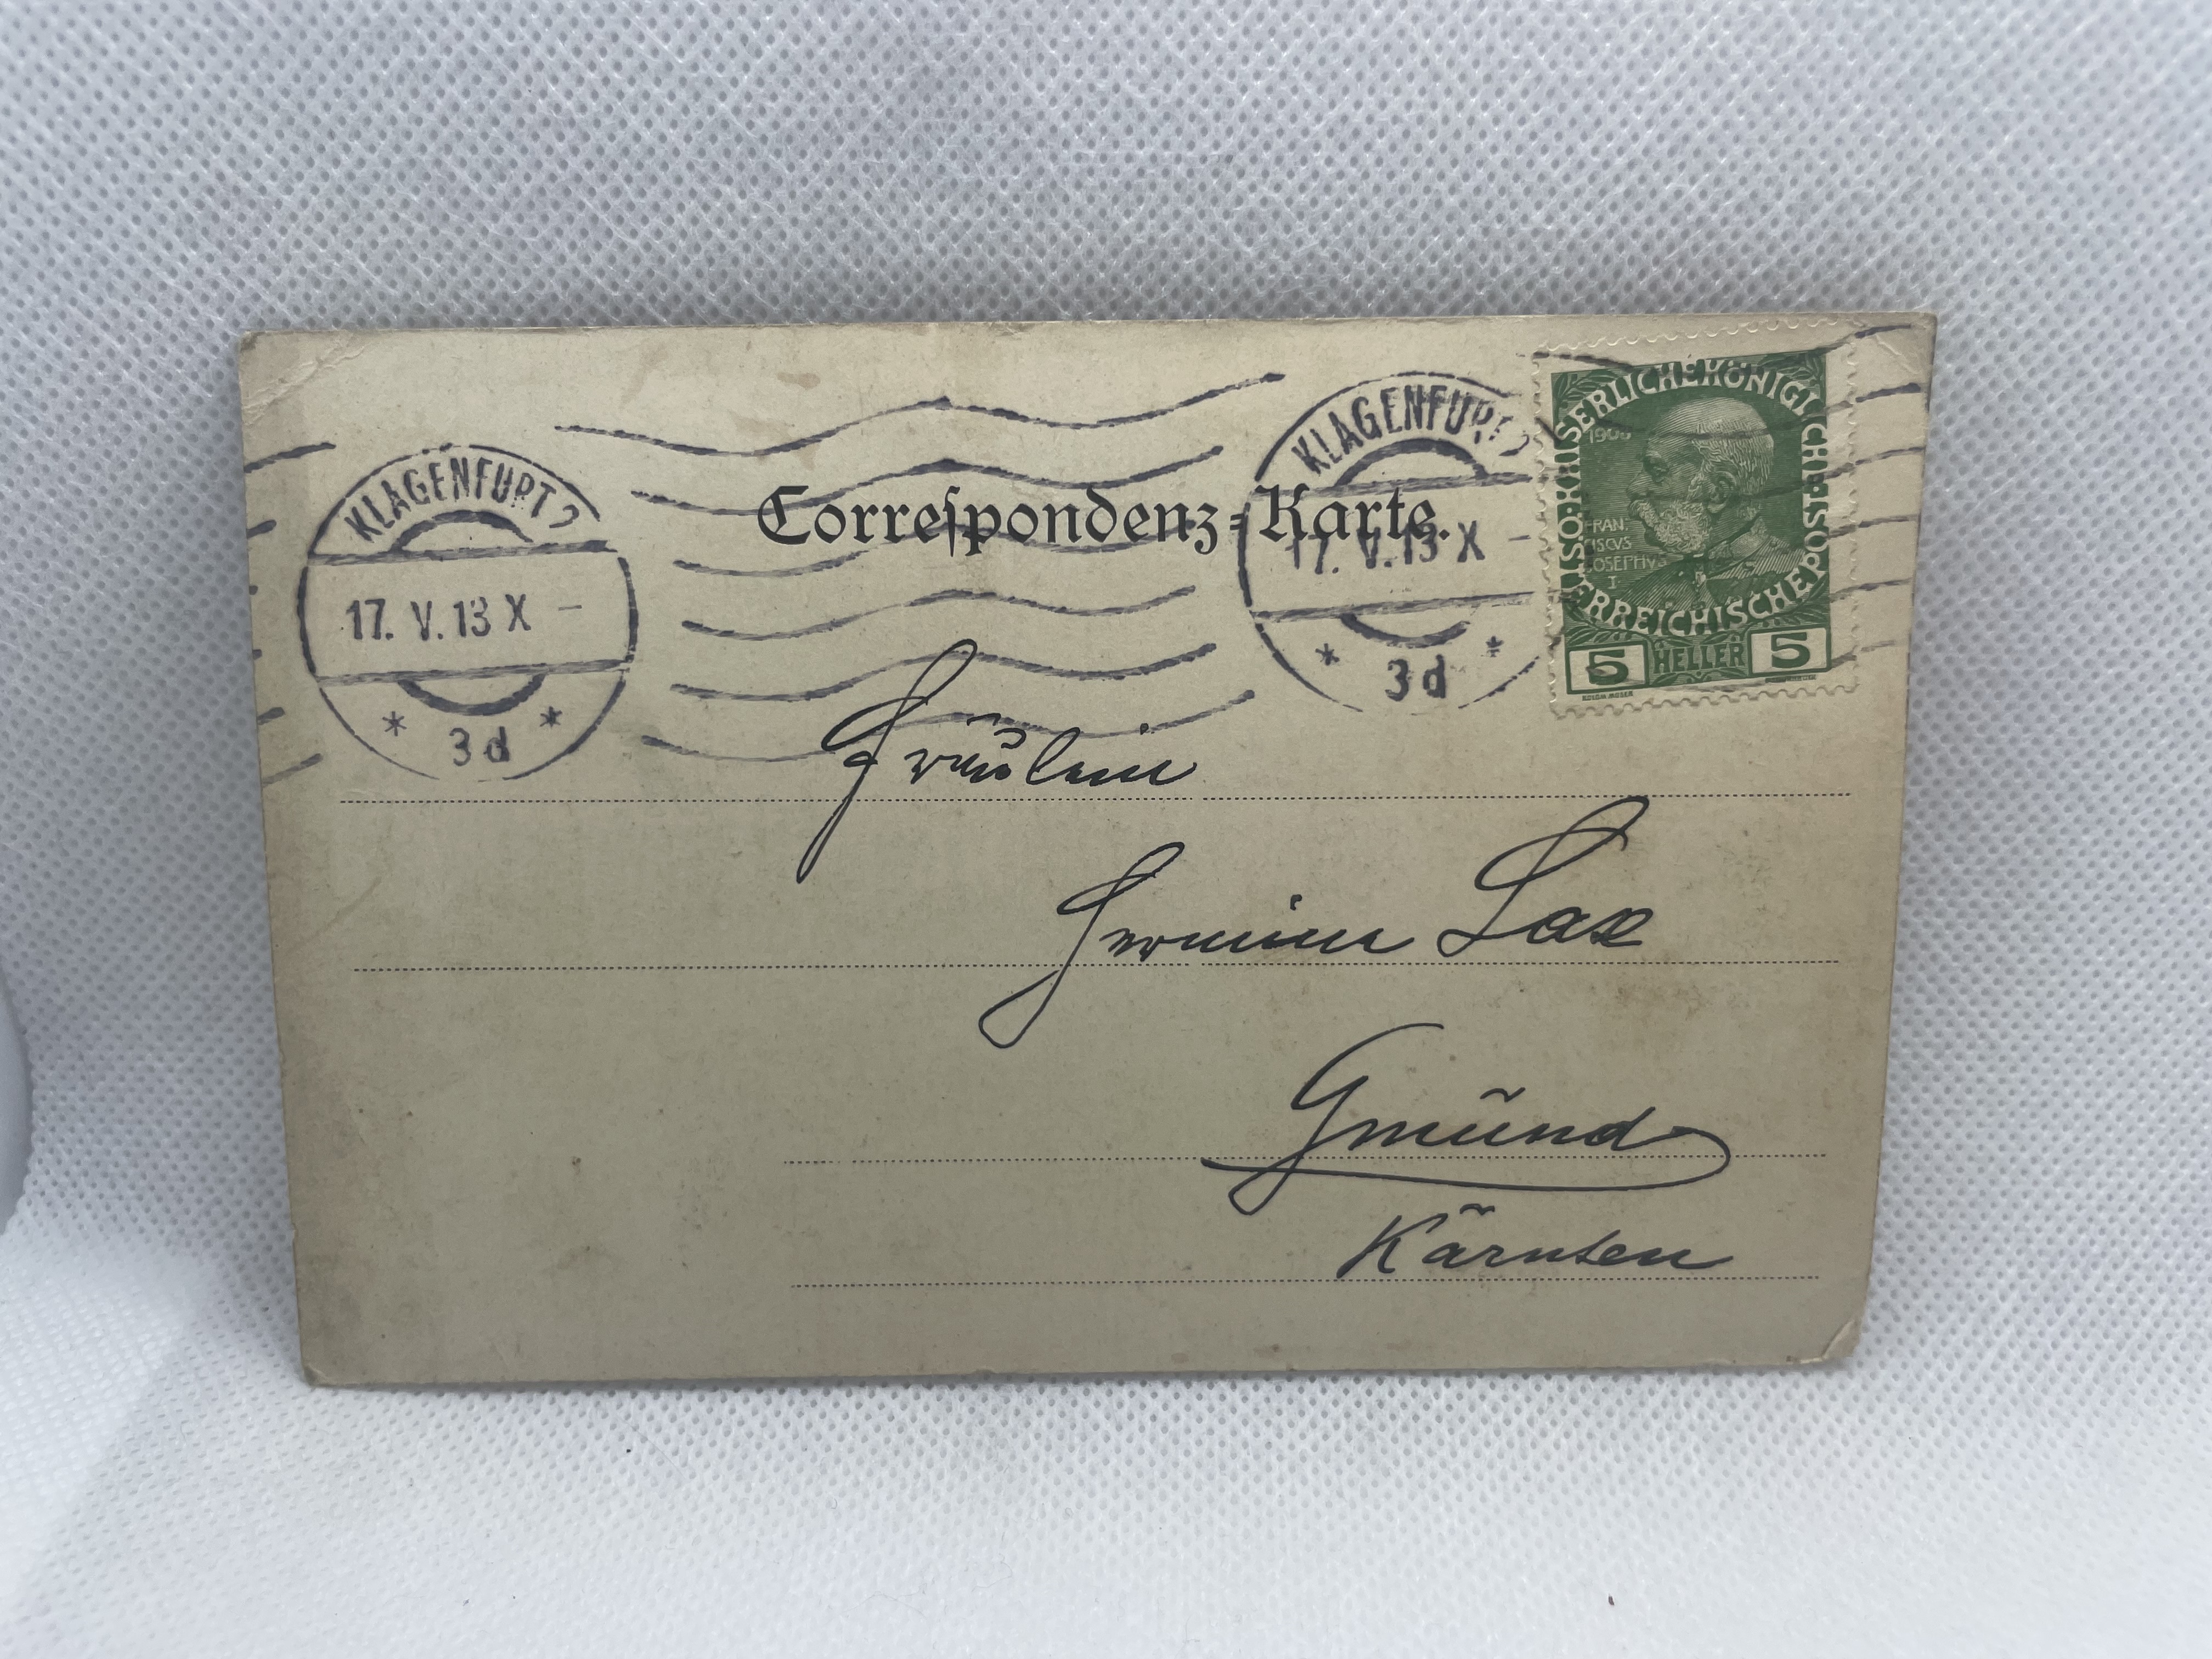 KLAGENFURT 2
17. V. 13 X -
* 3d *
Correspondenz-Karte.
KLAGENFURT 2
17. V. 13 X -
* 3d *
KAISERLICHE KÖNIGLICHE ÖSTERREICHISCHE POST
1908
FRAN
CISCVS
IOSEPHVS
I
5 HELLER 5
KOLOM. MOSER
Fräulein
Hermine Lax
Gmünd
Kärnten